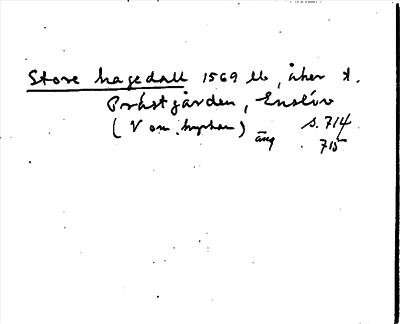 Store hagedall 1569 lb, åker t.
Prästgården, Enslöv
(V om kyrkan) s. 714
äng . 715